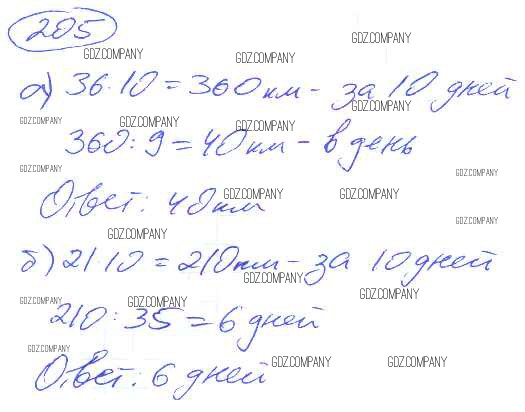 205
GDZ.COMPANY
GDZ.COMPANY
GDZ.COMPANY
а) 36 · 10 = 360 км - за 10 дней
GDZ.COMPANY
GDZ.COMPANY
GDZ.COMPANY
GDZ.COMPANY
360 : 9 = 40 км - в день
GDZ.COMPANY
GDZ.COMPANY
Ответ: 40 км
GDZ.COMPANY
GDZ.COMPANY
GDZ.COMPANY
GDZ.COMPANY
б) 21 · 10 = 210 км - за 10 дней
GDZ.COMPANY
GDZ.COMPANY
GDZ.COMPANY
GDZ.COMPANY
210 : 35 = 6 дней
GDZ.COMPANY
GDZ.COMPANY
GDZ.COMPANY
Ответ: 6 дней